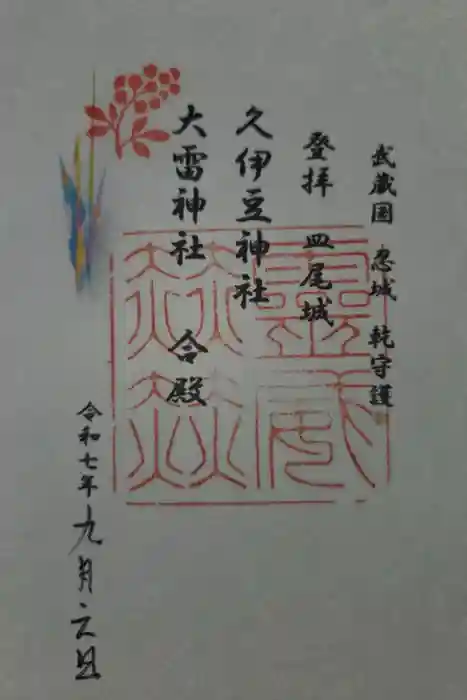 武蔵国 忍城 乾守護
登拝 皿尾城
久伊豆神社
大雷神社 合殿
令和七年九月六日
靈威赫赫